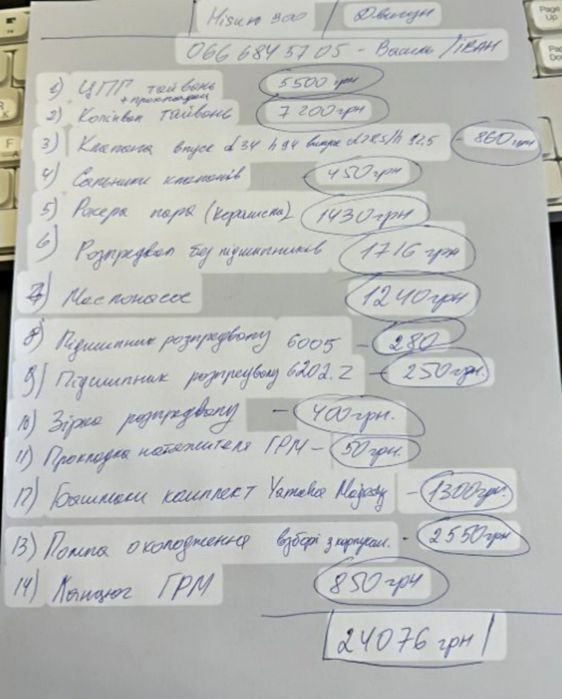 Двигун
066 684 57 05 - Василь /ІВАН
1) ЦПГ тайвань 5500 грн
+ прокладки
2) Колінвал тайвань 7200 грн
3) Клапана впуск d34 h94 випуск d28.5/h 92.5 - 860 грн
4) Сальники клапанів 450 грн
5) Рокера пара (коромисла) 1430 грн
6) Розпредвал без підшипників 1716 грн
7) Маслонасос 1240 грн
8) Підшипник розпредвалу 6005 - 280
9) Підшипник розпредвалу 6202.Z - 250 грн.
10) Зірка розпредвалу - 400 грн.
11) Прокладка натяжителя ГРМ - 50 грн.
12) Башмаки комплект Yamaha Majesty - 1300 грн.
13) Помпа охолодження взборі з корпусом. - 2550 грн
14) Ланцюг ГРМ 850 грн
24076 грн